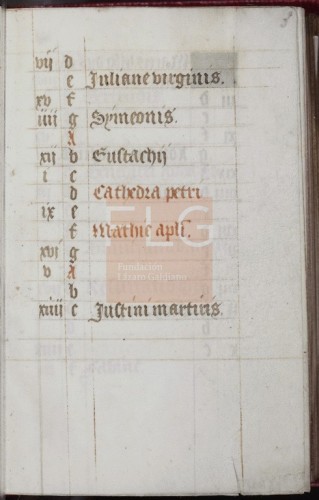 vij d
e Juliane virginis.
xv f
iiij g Symeonis.
A
xij b Eustachij
i c
d Cathedra petri
ix e
f Mathie apli.
xvj g
v A
b
xiiij c Justini martiris.
FLG
Fundación
Lázaro Galdiano